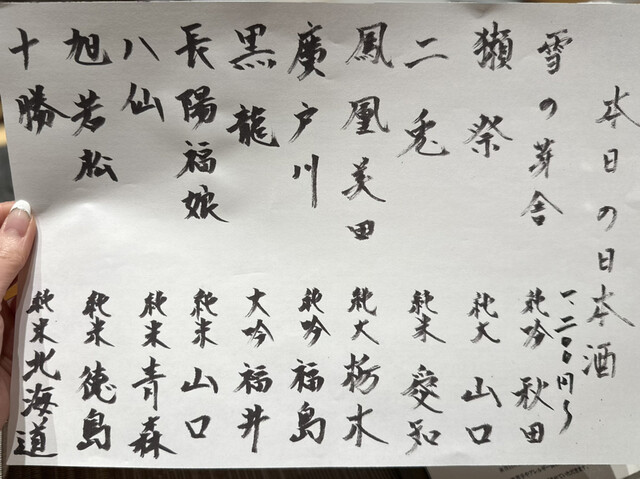 本日の日本酒
一、二〇〇円〜
雪の芽舎 純吟 秋田
獺祭 純大 山口
二兎 純米 愛知
鳳凰美田 純大 栃木
廣戸川 純吟 福島
黒龍 大吟 福井
長陽福娘 純米 山口
八仙 純米 青森
旭若松 純米 徳島
十勝 純米 北海道